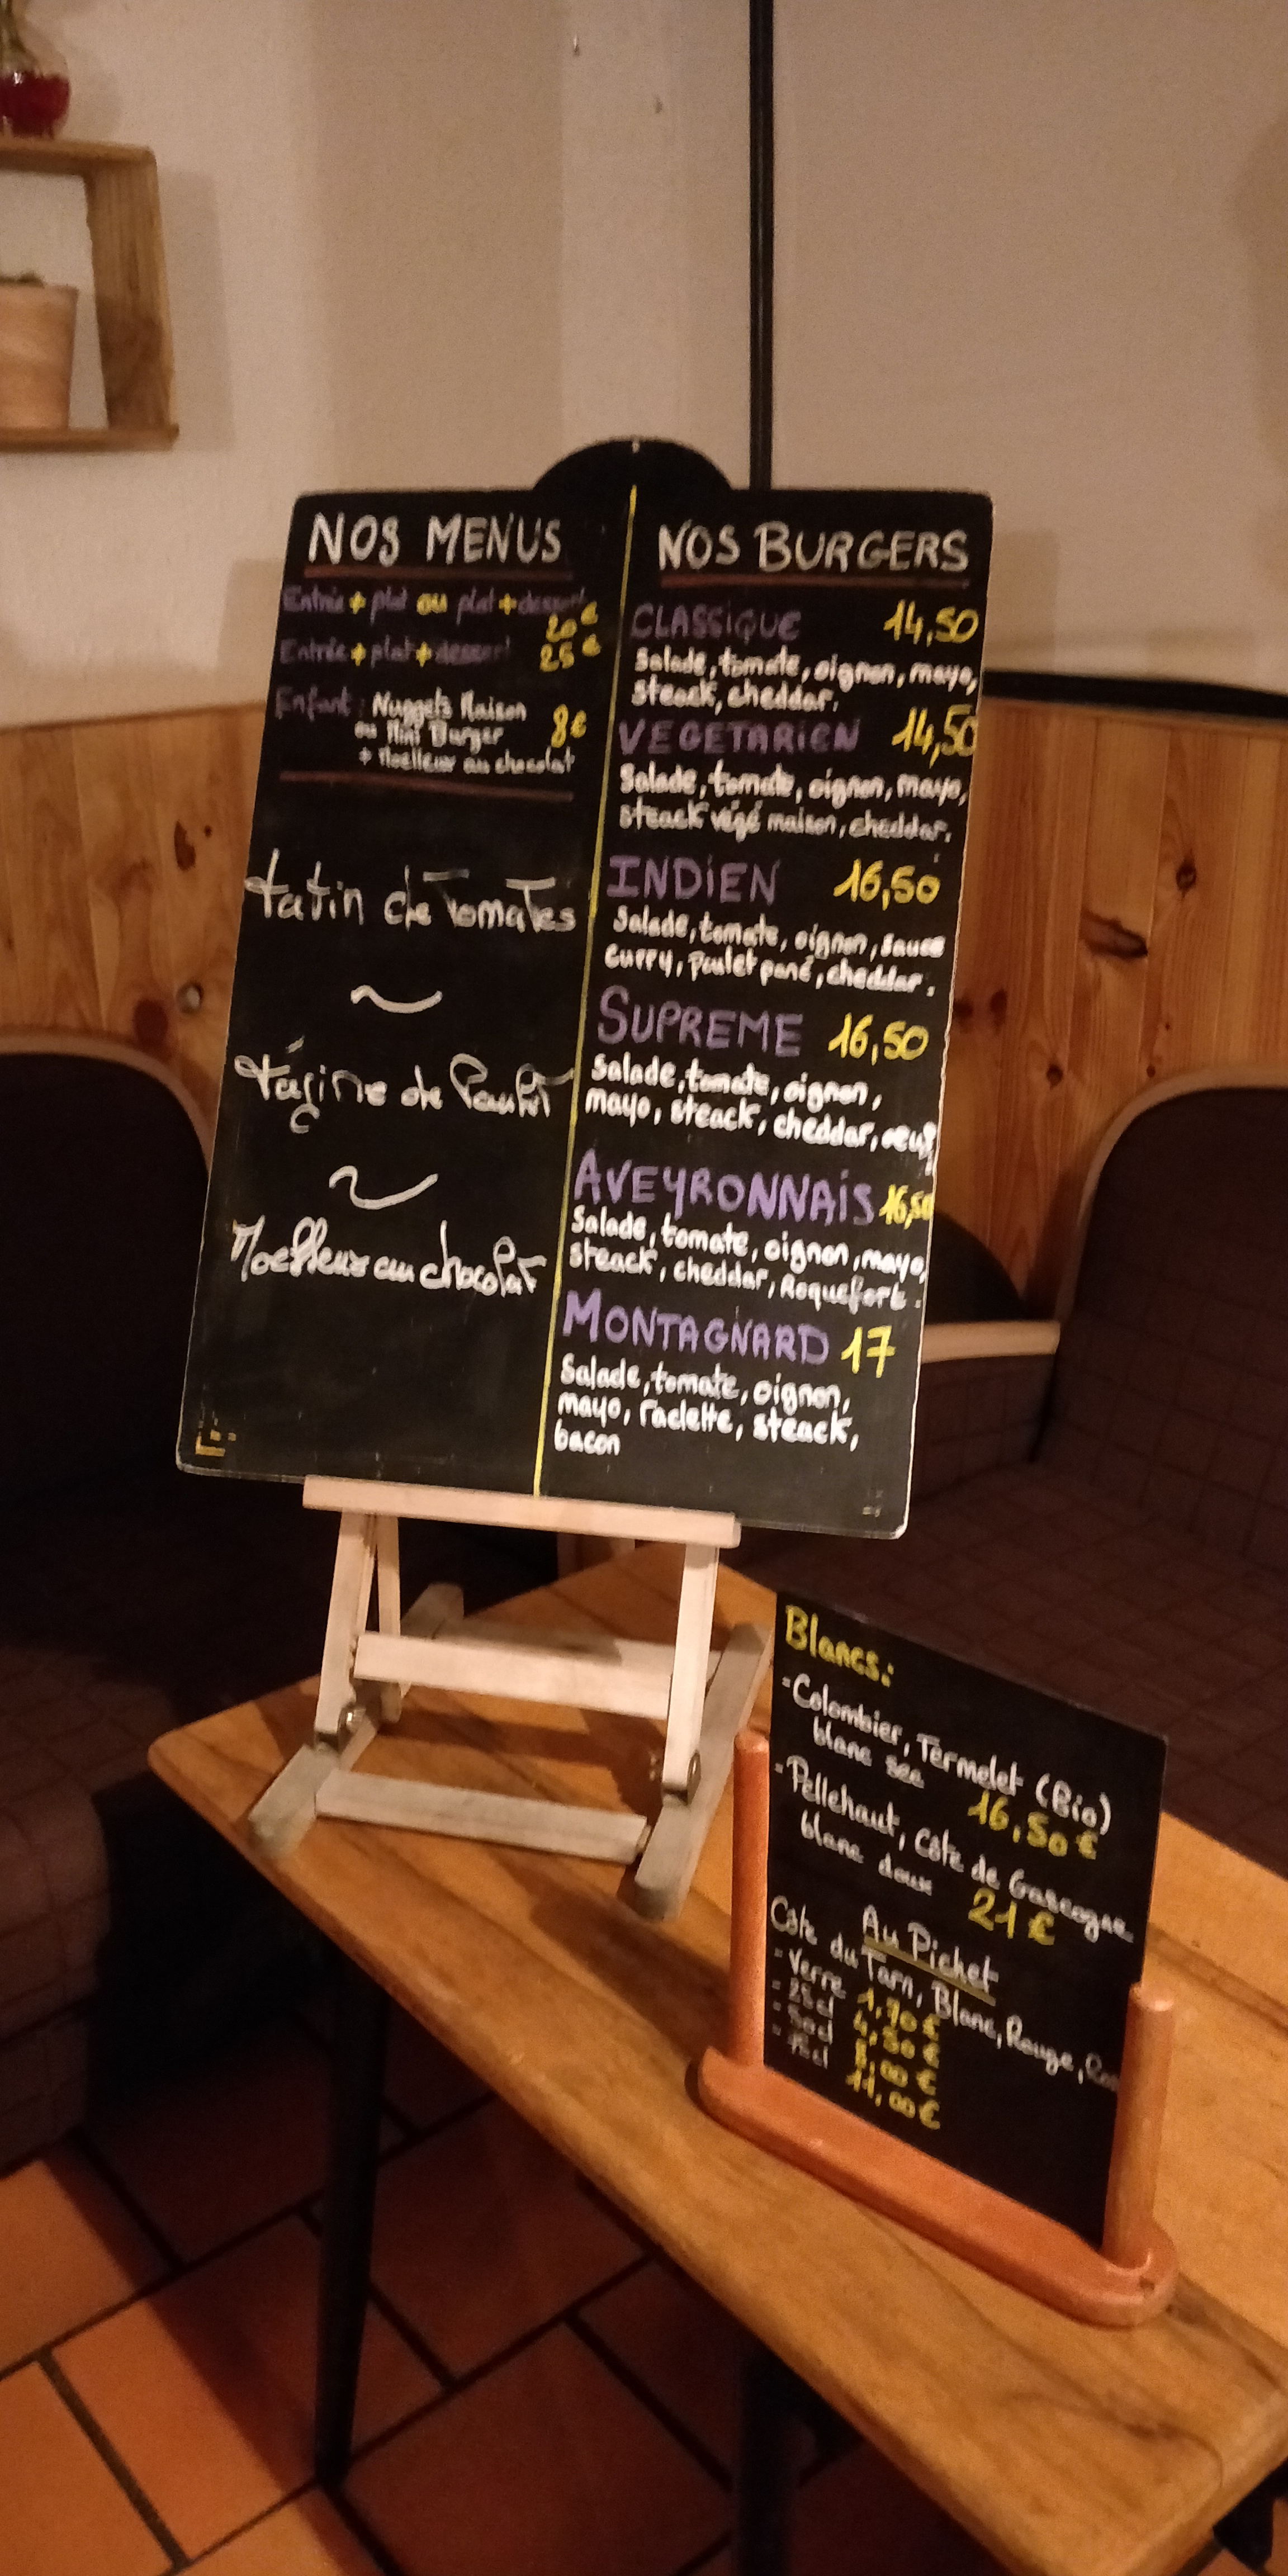 NOS MENUS
Entrée + plat ou plat + dessert
20 €
Entrée + plat + dessert 25 €
Enfant : Nuggets Maison
ou Mini Burger 8€
+ Moelleux au chocolat
tatin de Tomates
~
tagine de Poulet
~
Moelleux au chocolat
NOS BURGERS
CLASSiQUE 14,50
Salade, tomate, oignon, mayo,
steack, cheddar.
VEGETARiEN 14,50
Salade, tomate, oignon, mayo,
steack végé maison, cheddar.
INDiEN 16,50
Salade, tomate, oignon, sauce
curry, poulet pané, cheddar.
SUPREME 16,50
Salade, tomate, oignon,
mayo, steack, cheddar, oeuf
AVEYRONNAiS 16,50
Salade, tomate, oignon, mayo,
steack, cheddar, Roquefort.
MONTAGNARD 17
Salade, tomate, oignon,
mayo, raclette, steack,
bacon
Blancs:
- Colombier, Termelet (Bio)
blanc sec 16,50 €
- Pellehaut, Côte de Gascogne
blanc doux 21 €
Au Pichet
Côte du Tarn, Blanc, Rouge,
- Verre 1,70 €
- 25cl 4,50 €
- 50cl 8,00 €
- 75cl 11,00 €